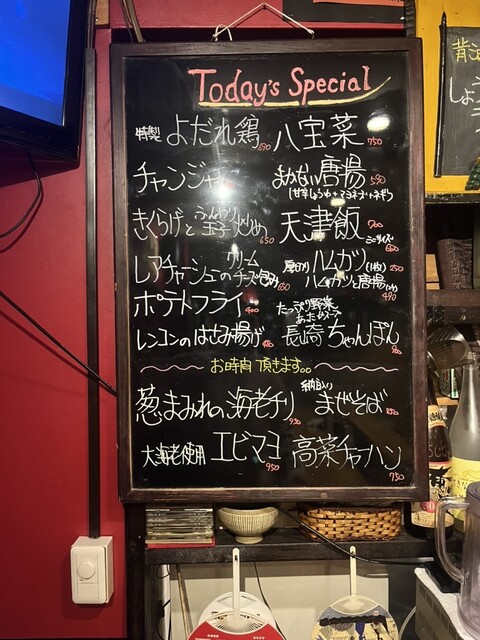 Today's Special
特製 よだれ鶏 690
八宝菜 750
チャンジャ
まかない唐揚 590
(甘辛しょうゆ+マヨネーズ+ネギ)
きくらげとふんわり玉子炒め 650
天津飯 700
ミニサイズ
レアチャーシューのクリームチーズ包み 650
厚切りハムカツ(1枚) 250
ハムカツと唐揚 490
ポテトフライ 400
たっぷり野菜
あっためスープ
レンコンのはさみ揚げ
長崎ちゃんぽん
お時間頂きます。。
葱まみれの海老チリ 950
納豆入り まぜそば 850
大海老使用 エビマヨ 950
高菜チャーハン 750